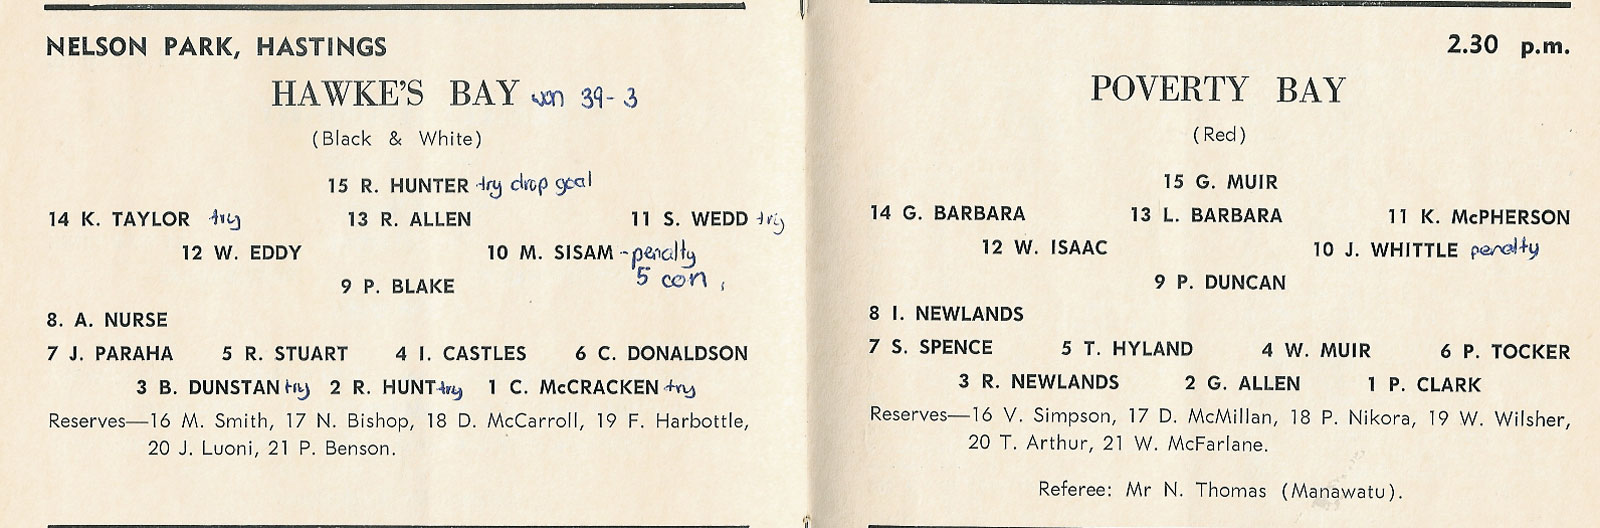 NELSON PARK, HASTINGS
HAWKE'S BAY won 39-3
(Black & White)
15 R. HUNTER try drop goal
14 K. TAYLOR try 13 R. ALLEN 11 S. WEDD try
12 W. EDDY 10 M. SISAM - penalty
5 con,
9 P. BLAKE
8. A. NURSE
7 J. PARAHA 5 R. STUART 4 I. CASTLES 6 C. DONALDSON
3 B. DUNSTAN try 2 R. HUNT try 1 C. McCRACKEN try
Reserves—16 M. Smith, 17 N. Bishop, 18 D. McCarroll, 19 F. Harbottle,
20 J. Luoni, 21 P. Benson.
2.30 p.m.
POVERTY BAY
(Red)
15 G. MUIR
14 G. BARBARA 13 L. BARBARA 11 K. McPHERSON
12 W. ISAAC 10 J. WHITTLE penalty
9 P. DUNCAN
8 I. NEWLANDS
7 S. SPENCE 5 T. HYLAND 4 W. MUIR 6 P. TOCKER
3 R. NEWLANDS 2 G. ALLEN 1 P. CLARK
Reserves—16 V. Simpson, 17 D. McMillan, 18 P. Nikora, 19 W. Wilsher,
20 T. Arthur, 21 W. McFarlane.
Referee: Mr N. Thomas (Manawatu).